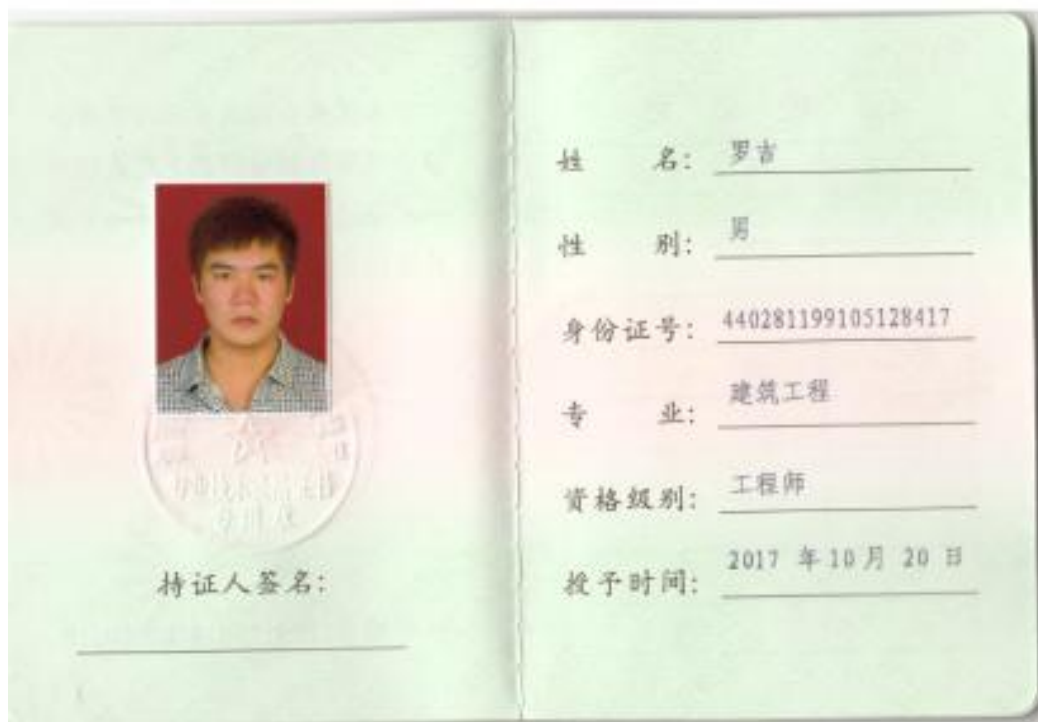 持证人签名:
姓 名: 罗吉
性 别: 男
身份证号: 440281199105128417
专 业: 建筑工程
资格级别: 工程师
授予时间: 2017 年 10 月 20 日